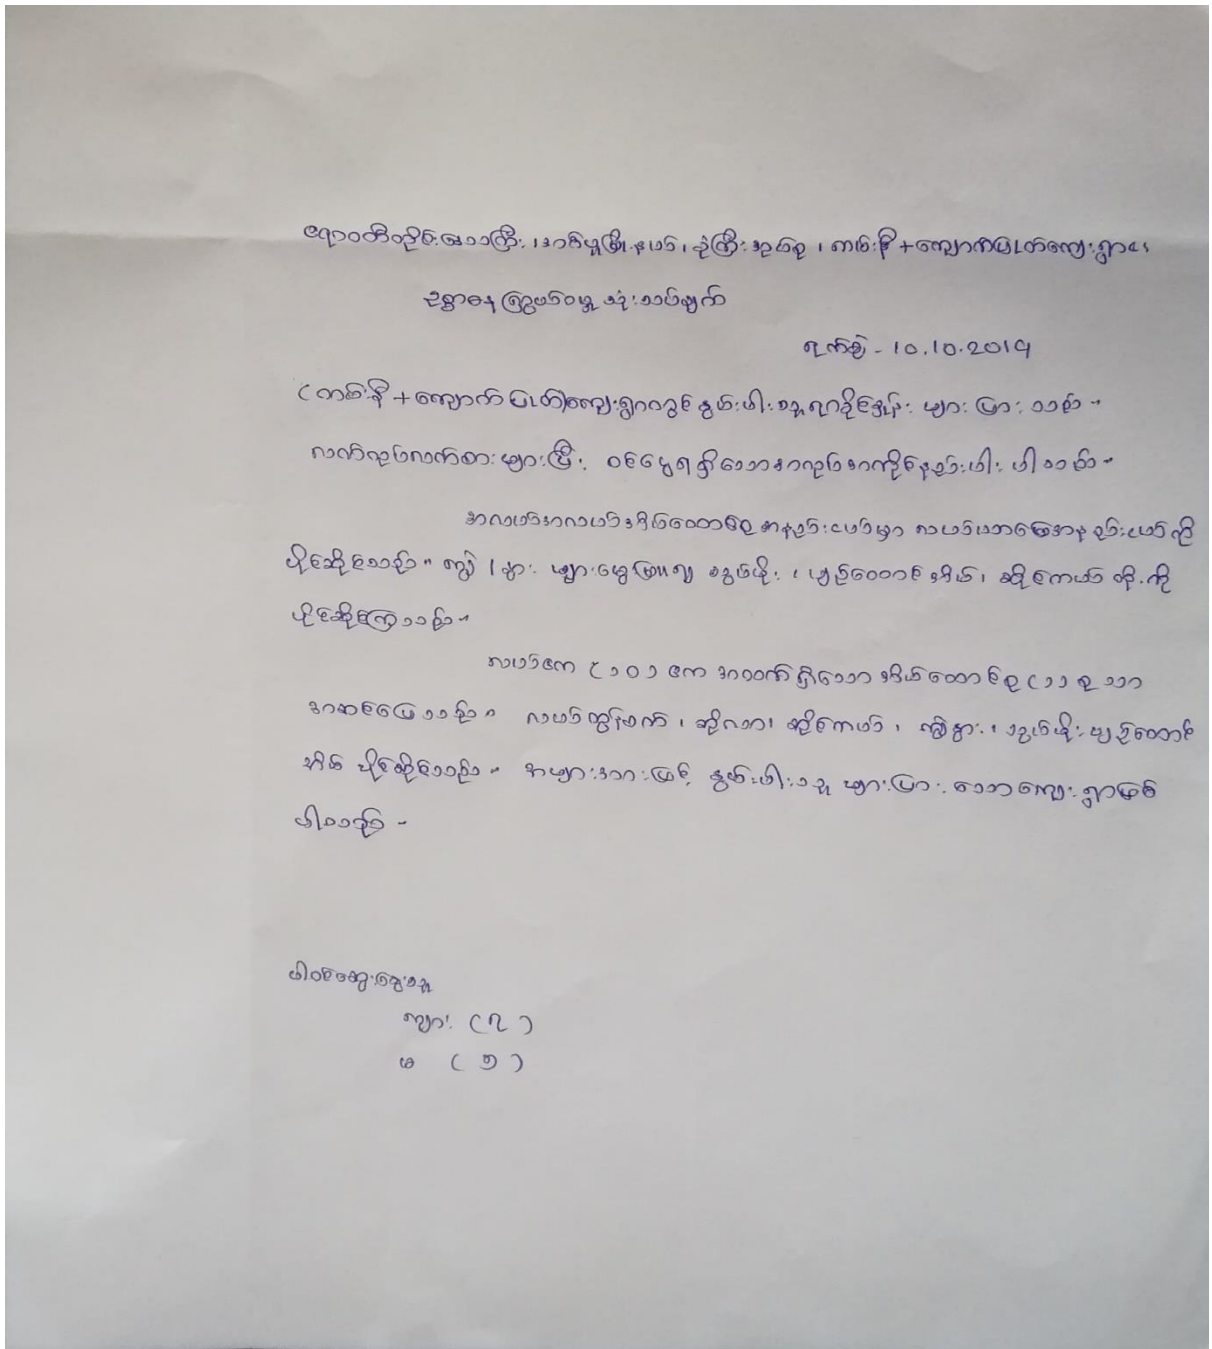 ဧရာဝတီတိုင်းဒေသကြီး၊ အင်္ဂပူမြို့နယ်၊ ခုံကြီးအုပ်စု၊ ကမ်းနီ+ကျောက်ပြုတ်ကျေးရွာ၏
ဥစ္စာဓနကြွယ်ဝမှု သုံးသပ်ချက်
ရက်စွဲ - 10.10.2019
(ကမ်းနီ+ကျောက်ပြုတ်)ကျေးရွာတွင် နွမ်းပါးသူရာခိုင်နှုန်း များပြားသည်။
လက်လုပ်လက်စားများပြီး ဝင်ငွေရရှိသောအလုပ်အကိုင်နည်းပါးပါသည်။
အလယ်အလယ်အိမ်ထောင်စု အနည်းငယ်မှာ လယ်ယာမြေအနည်းငယ်ကို
ပိုင်ဆိုင်သည်။ ကျွဲ၊ နွား များမွေးမြူ၍ သွပ်မိုး၊ ပျဉ်ထောင်အိမ်၊ ဆိုင်ကယ် တို့ကို
ပိုင်ဆိုင်ကြသည်။
လယ်ဧက (၁၀) ဧက အထက်ရှိသော အိမ်ထောင်စု (၁) စုသာ
အဆင်ပြေသည်။ လယ်ထွန်စက်၊ ဆိုလာ၊ ဆိုင်ကယ်၊ ကျွဲနွား၊ သွပ်မိုးပျဉ်ထောင်
အိမ် ပိုင်ဆိုင်သည်။ အများအားဖြင့် နွမ်းပါးသူ များပြားသောကျေးရွာဖြစ်
ပါသည်။
ပါဝင်ဆွေးနွေးသူ
ကျား (၇)
မ (၅)